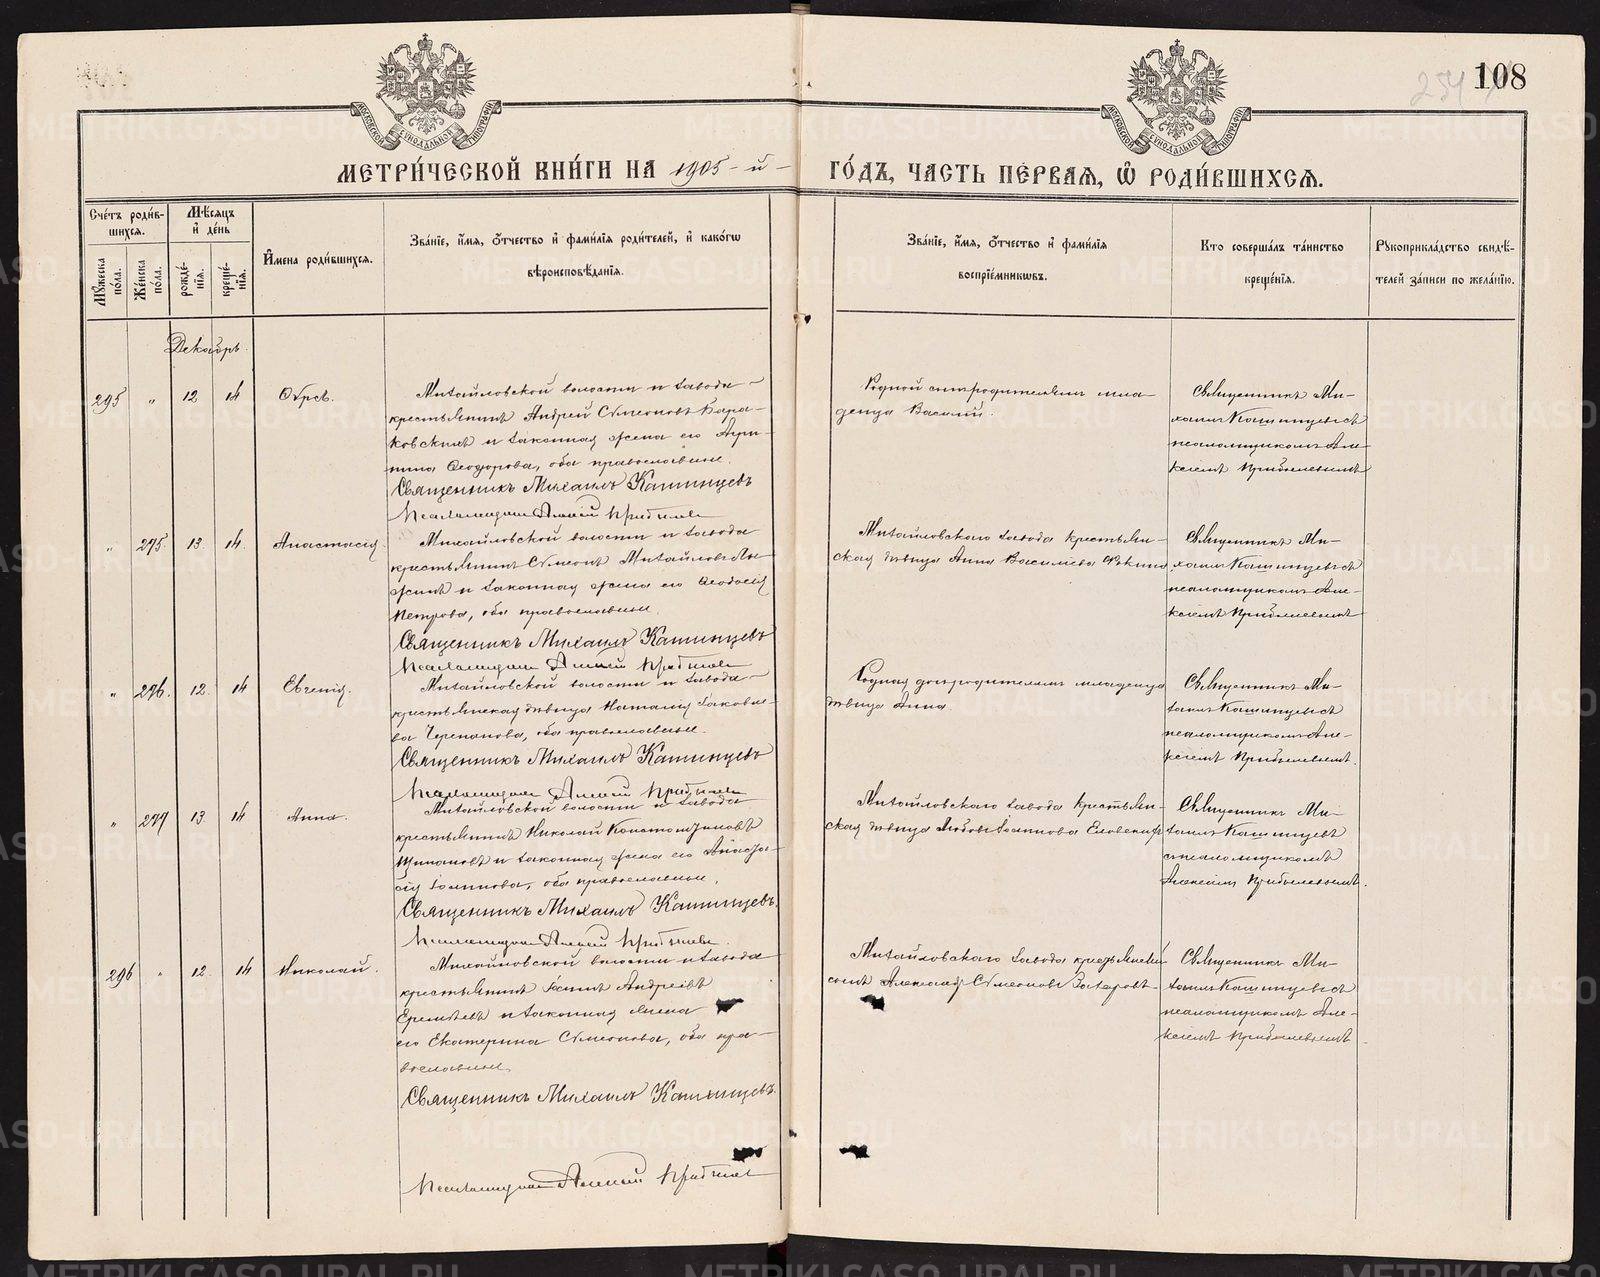 108
МОСКОВСКОЙ СѴНОДАЛЬНОЙ ТИПОГРАФІИ
МОСКОВСКОЙ СѴНОДАЛЬНОЙ ТИПОГРАФІИ
МЕТРИ́ЧЕСКОЙ КНИ́ГИ НА 1905-й- ГО́ДЪ, ЧАСТЬ ПЕ́РВАѦ, Ѽ РОДИ́ВШИХСѦ.
Сче́тъ роди́в-
шихсѧ.
Мꙋ́жеска по́ла.
Же́нска по́ла.
Мѣ́сѧцъ
и҆ де́нь
рожде́-
нїѧ.
креще́-
нїѧ.
И҆мена роди́вшихсѧ.
Зва́нїе, и҆́мѧ, ѻ҆́тчество и҆ фами́лїѧ роди́телей, и҆ како́гѡ
вѣроисповѣ́данїѧ.
Зва́нїе, и҆́мѧ, ѻ҆́тчество и҆ фами́лїѧ
воспрїе́мникѡвъ.
Кто̀ соверша́лъ та́инство
креще́нїѧ.
Рꙋкоприкла́дство свидѣ́-
телей за́писи по жела́нїю.
Декабрь.
295 " 12 14
Михайловской волости и завода
крестьянинъ Андрей Сѵмеоновъ Бара-
ковскихъ и законная жена его Агрип-
пина Ѳеодорова, оба православные.
Священникъ Михаилъ Кашинцевъ
Псаломщикъ Алексій Прибылевъ
Родной сынъ родителямъ мла-
денца Василій.
Священникъ Ми-
хаилъ Кашинцевъ съ
псаломщикомъ Але-
ксіемъ Прибылевымъ
" 275 13 14 Анастасія.
Михайловской волости и завода
крестьянинъ Сѵмеонъ Михайловъ
и законная жена его Ѳеодосія
Петрова, оба православные.
Священникъ Михаилъ Кашинцевъ
Псаломщикъ Алексій Прибылевъ
Михайловскаго завода крестьян-
ская дѣвица Анна Василіева
Священникъ Ми-
хаилъ Кашинцевъ съ
псаломщикомъ Але-
ксіемъ Прибылевымъ
" 276. 12 14 Евгенія.
Михайловской волости и завода
крестьянская дѣвица Наталія Іаковле-
ва Черепанова, православные.
Священникъ Михаилъ Кашинцевъ
Псаломщикъ Алексій Прибылевъ
Родная дочь родителямъ младенца
дѣвица Анна.
Священникъ Ми-
хаилъ Кашинцевъ съ
псаломщикомъ Але-
ксіемъ Прибылевымъ.
" 277 13 14 Анна.
Михайловской волости и завода
крестьянинъ Николай Константиновъ
Щипановъ и законная жена его Анаста-
сія Іоаннова, оба православные.
Священникъ Михаилъ Кашинцевъ.
Псаломщикъ Алексій Прибылевъ.
Михайловскаго завода крестьян-
ская дѣвица Любовь Іоаннова
Священникъ Ми-
хаилъ Кашинцевъ
съ псаломщикомъ
Алексіемъ Прибылевымъ.
296 " 12 14 Николай.
Михайловской волости и завода
крестьянинъ Андреевъ
Еремѣевъ и законная жена
его Екатерина Сѵмеонова, оба пра-
вославные.
Священникъ Михаилъ Кашинцевъ.
Псаломщикъ Алексій Прибылевъ
Михайловскаго завода крестьянскій
сынъ Александръ Сѵмеоновъ Захаровъ.
Священникъ Ми-
хаилъ Кашинцевъ съ
псаломщикомъ Але-
ксіемъ Прибылевымъ
METRIKI.GASO-URAL.RU